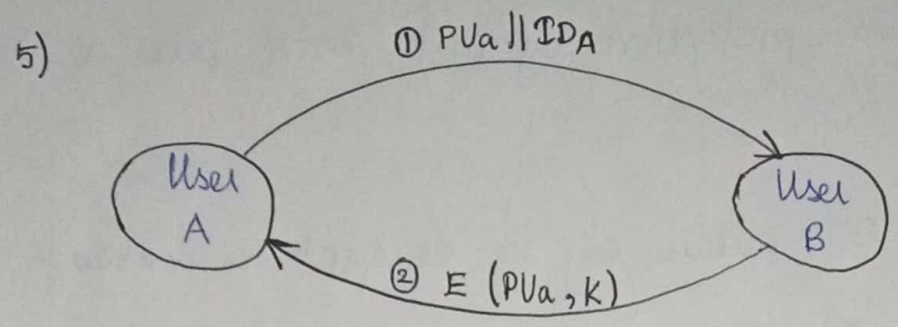 5)
① PUa || IDA
User
A
User
B
② E (PUa, K)